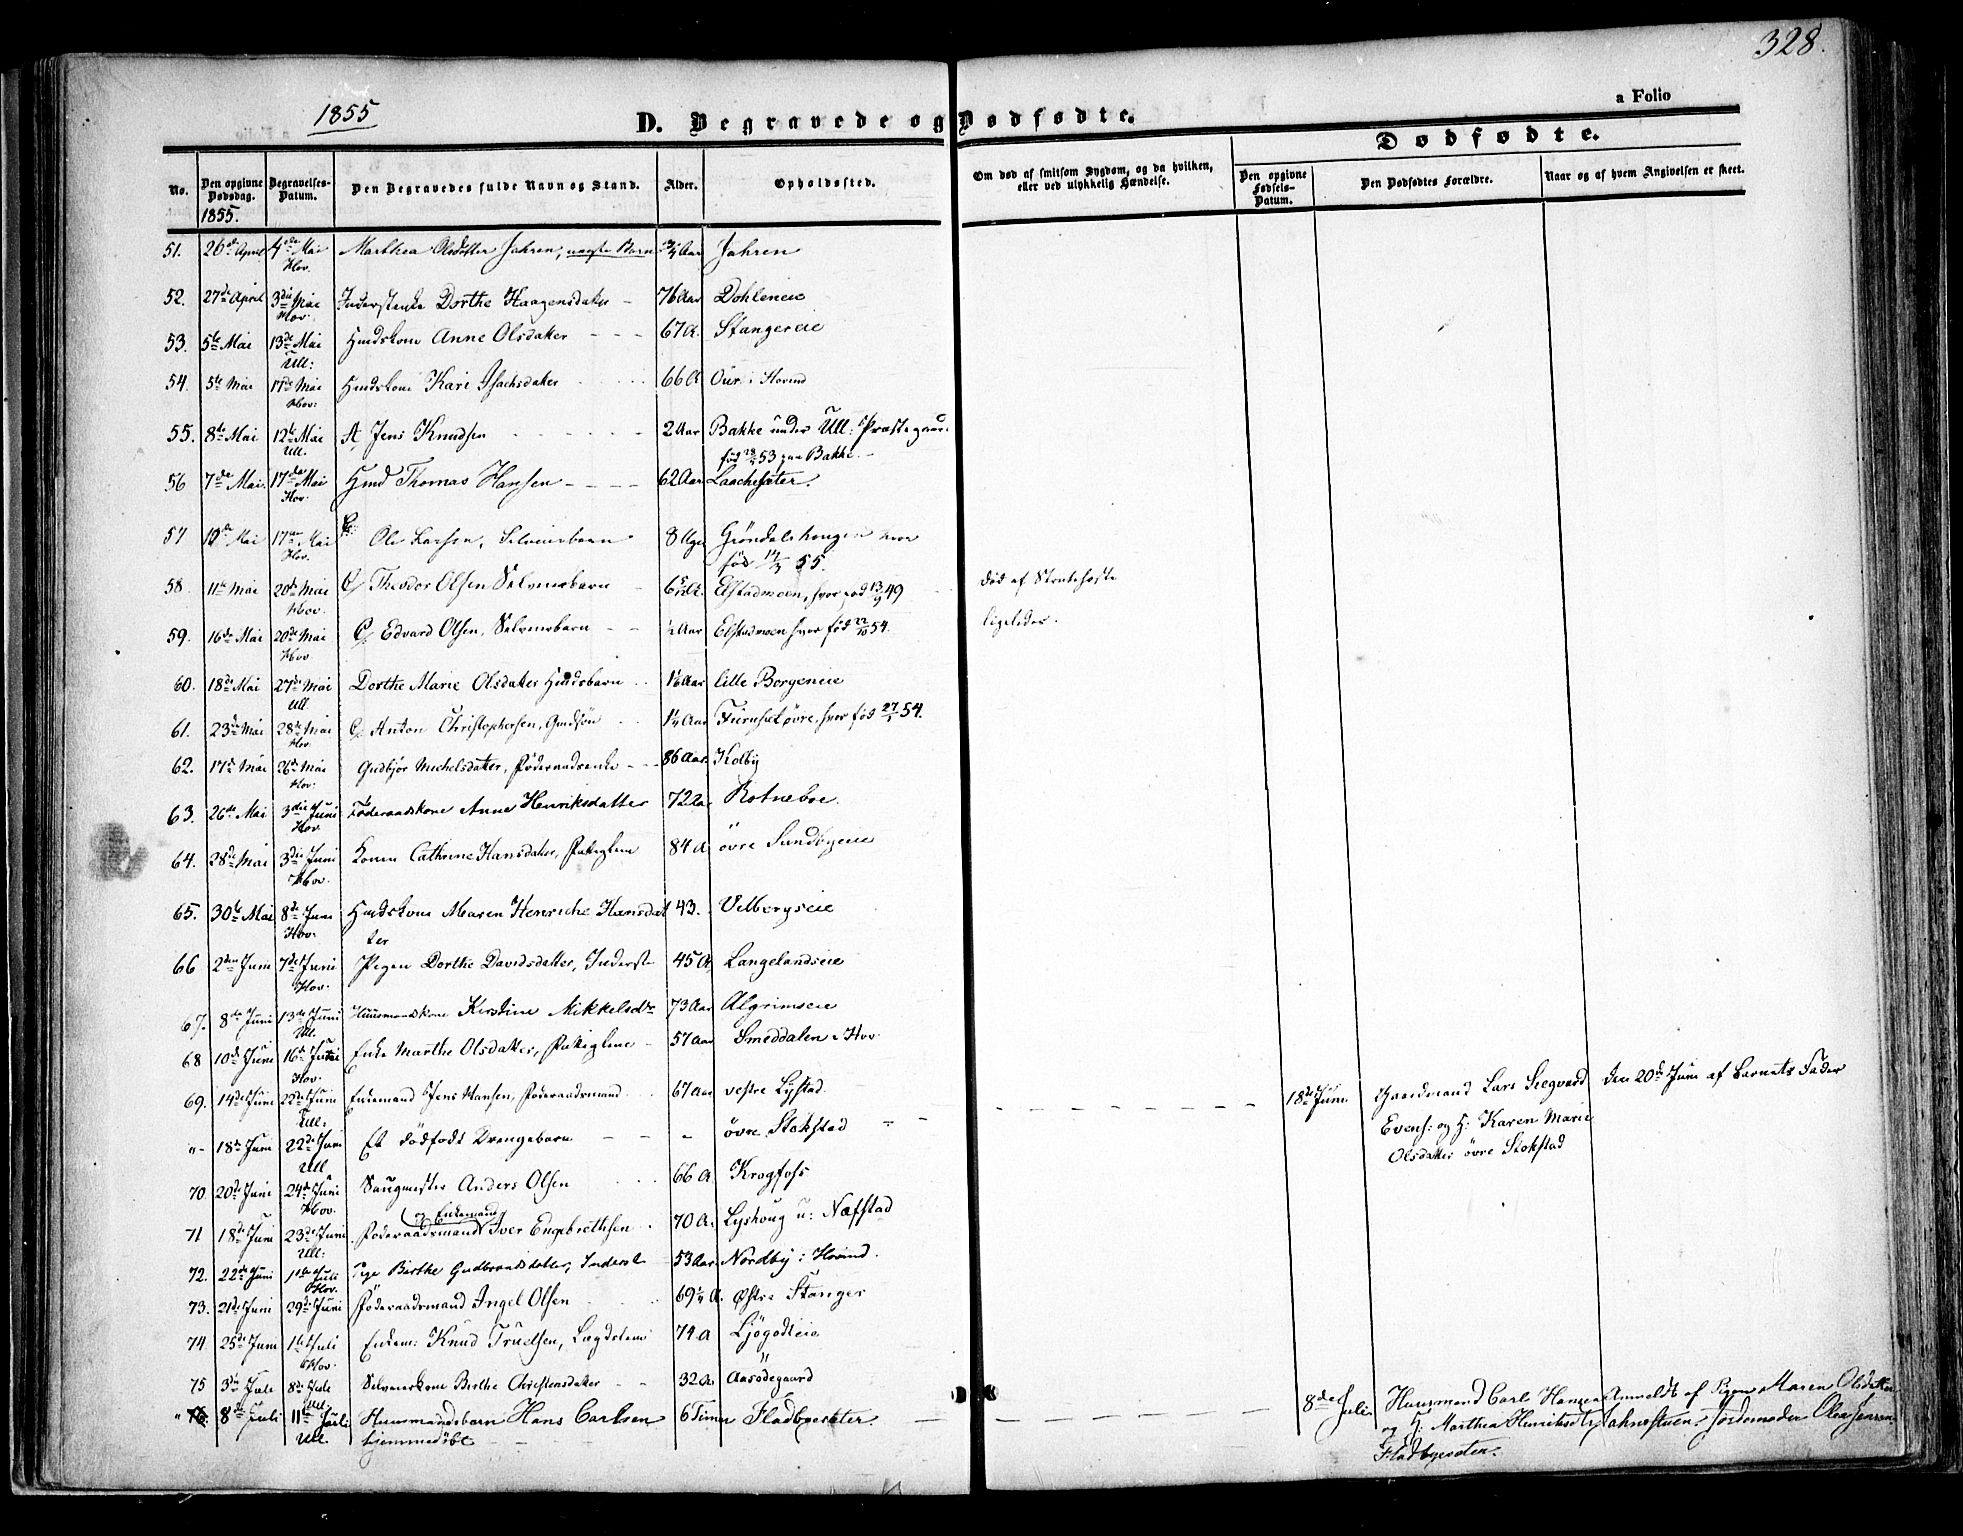 328.
1855
a Folio
D. Begravede og Dødfødte.
Dødfødte.
No.
Den opgivne Dødsdag.
Begravelses-Datum.
Den Begravedes fulde Navn og Stand.
Alder.
Opholdssted.
Om død af smitsom Sygdom, og da hvilken, eller ved ulykkelig Hændelse.
Den opgivne Fødsels-Datum.
Den Dødfødtes Forældre.
Naar og af hvem Angivelsen er skeet.
1855.
51. 26de April 4de Mai Marthea Olsdatter Jahren, Aar Jahren
Hov.
52. 27de April 3die Mai Inderstenke Dorthe Haagensdatter 76 Aar Dohleneie
Hov.
53. 5te Mai 13de Mai Huskone Anne Olsdatter 67 A. Stangereie
Ull:
54. 5te Mai 17de Mai Kari Isachsdatter 66 A Our i Hovind
Hov:
55. 8de Mai 12te Mai Jens Knudsen 2 Aar Bakke under Ull: Præstegaard
Ull. fød 53 paa Bakke
56 7de Mai 17de Mai Thomas Hansen 62 Aar Laachesæter.
Hov.
57 10de Mai 17de Mai Ole Larsen, Selveierbarn 8 Uger Grøndalshougen hvor
Hov. fød 55.
58. 11te Mai 20de Mai Theodor Olsen Selveierbarn 6 A. Elstadmoen, hvor fød 13/9 49 død af Strubehoste
Hov.
59. 16de Mai 20de Mai Edvard Olsen, Selveierbarn ½ Aar Elstadmoen hvor fød 22/10 54. ligeledes.
Hov
60. 18de Mai 27de Mai Dorthe Marie Olsdatter Husmdsbarn Aar lille Borgeneie
Ull
61. 23de Mai 28de Mai Anton Christophersen, Gmdsøn Aar Furuset øvre, hvor fød 54.
Hov.
62. 17de Mai 26de Mai Gudbjør Michelsdatter, Føderaadsenke 86 Aar. Kolby
Hov.
63. 26de Mai 3die Juni Føderaadskone Anne Henriksdatter 72 Aar Rotneboe.
Hov.
64. 28de Mai 3die Juni Konen Cathrine Hansdatter, 84 A øvre Sundbyeie
Hov.
65. 30te Mai 8de Juni Maren Henriche Hansdat 43. Velbergseie
Hov. ter
66 2den Juni 7de Juni Pigen Dorthe Davidsdatter, Inderst 45 A Langelandseie
Hov.
67. 8de Juni 13de Juni Huusmandskone Kirstine Mikkelsdtr 73 Aar Algrimseie
Ull.
68 10de Juni 16de Juni Enke Marthe Olsdatter, 57 Aar Smeddalen i Hov
Hov.
69. 14de Juni 22de Juni Enkemand Jens Hansen, Føderaadsmand 67 Aar vestre Lystad
Ull:
"- 18de Juni 22de Juni Et dødfødt Drengebarn - øvre Stokstad 18de Juni. Gaardmand Lars Siegvard Evens: og H: Karen Marie Olsdatter øvre Stokstad den 20de Juni af Barnets Fader
Ull
70. 20de Juni 24de Juni Saugmester Anders Olsen 66 A. Krogfoss
Hov.
71 18de Juni 23de Juni Føderaadsmand og Enkemand Iver Engebrethsen 70 A. Lyshoug u: Næfstad
Ull:
72. 22de Juni 1ste Juli Pige Birthe Gudbrandsdatter, Inderst 53 Aar. Nordby i Hovind.
Hov.
73. 21de Juni 29de Juni Føderaadsmand Ingel Olsen 69¼ A. Østre Stanger
74 25de Juni 1ste Juli Enkem: Knud Truelsen, Lægdslem 74 A Ljøgodteie
Hov.
75 3die Juli 8de Juli Selveierkone Birthe Christensdatter 32 A. Aasødegaard
Ull.
" 8de Juli 11te Juli Huusmandsbarn Hans Carlsen 6 Timer Fladbyesæter 8de Juli. Huusmand Carl Hansen og H: Marthea Henriksdtr Fladbyesæter. Anmeldt af Pigen Maren Olsdatter Jahrestuen. Jordemoder Olea Jensen.
Ull. hjemmedøbt